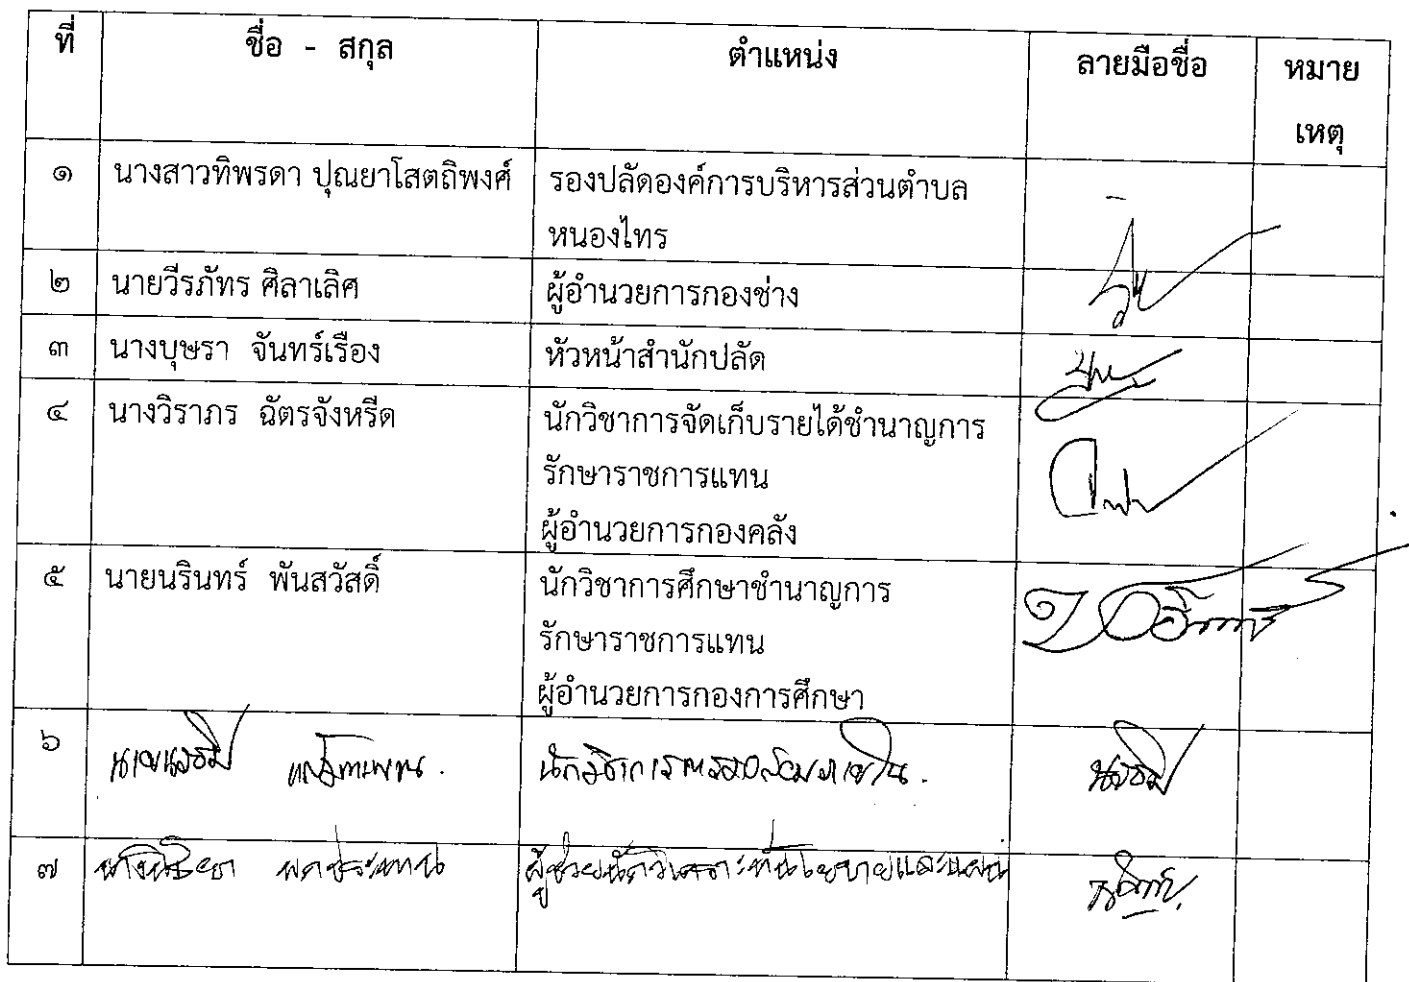 ที่ ชื่อ - สกุล ตำแหน่ง ลายมือชื่อ หมาย
เหตุ
๑ นางสาวทิพรดา ปุณยาโสตถิพงศ์ รองปลัดองค์การบริหารส่วนตำบล
หนองไทร
๒ นายวีรภัทร ศิลาเลิศ ผู้อำนวยการกองช่าง
๓ นางบุษรา จันทร์เรือง หัวหน้าสำนักปลัด
๔ นางวิราภร ฉัตรจังหรีด นักวิชาการจัดเก็บรายได้ชำนาญการ
รักษาราชการแทน
ผู้อำนวยการกองคลัง
๕ นายนรินทร์ พันสวัสดิ์ นักวิชาการศึกษาชำนาญการ
รักษาราชการแทน
ผู้อำนวยการกองการศึกษา
๖ นักวิชาการตรวจสอบภายใน
๗ ผู้ช่วยนักวิเคราะห์นโยบายและแผน